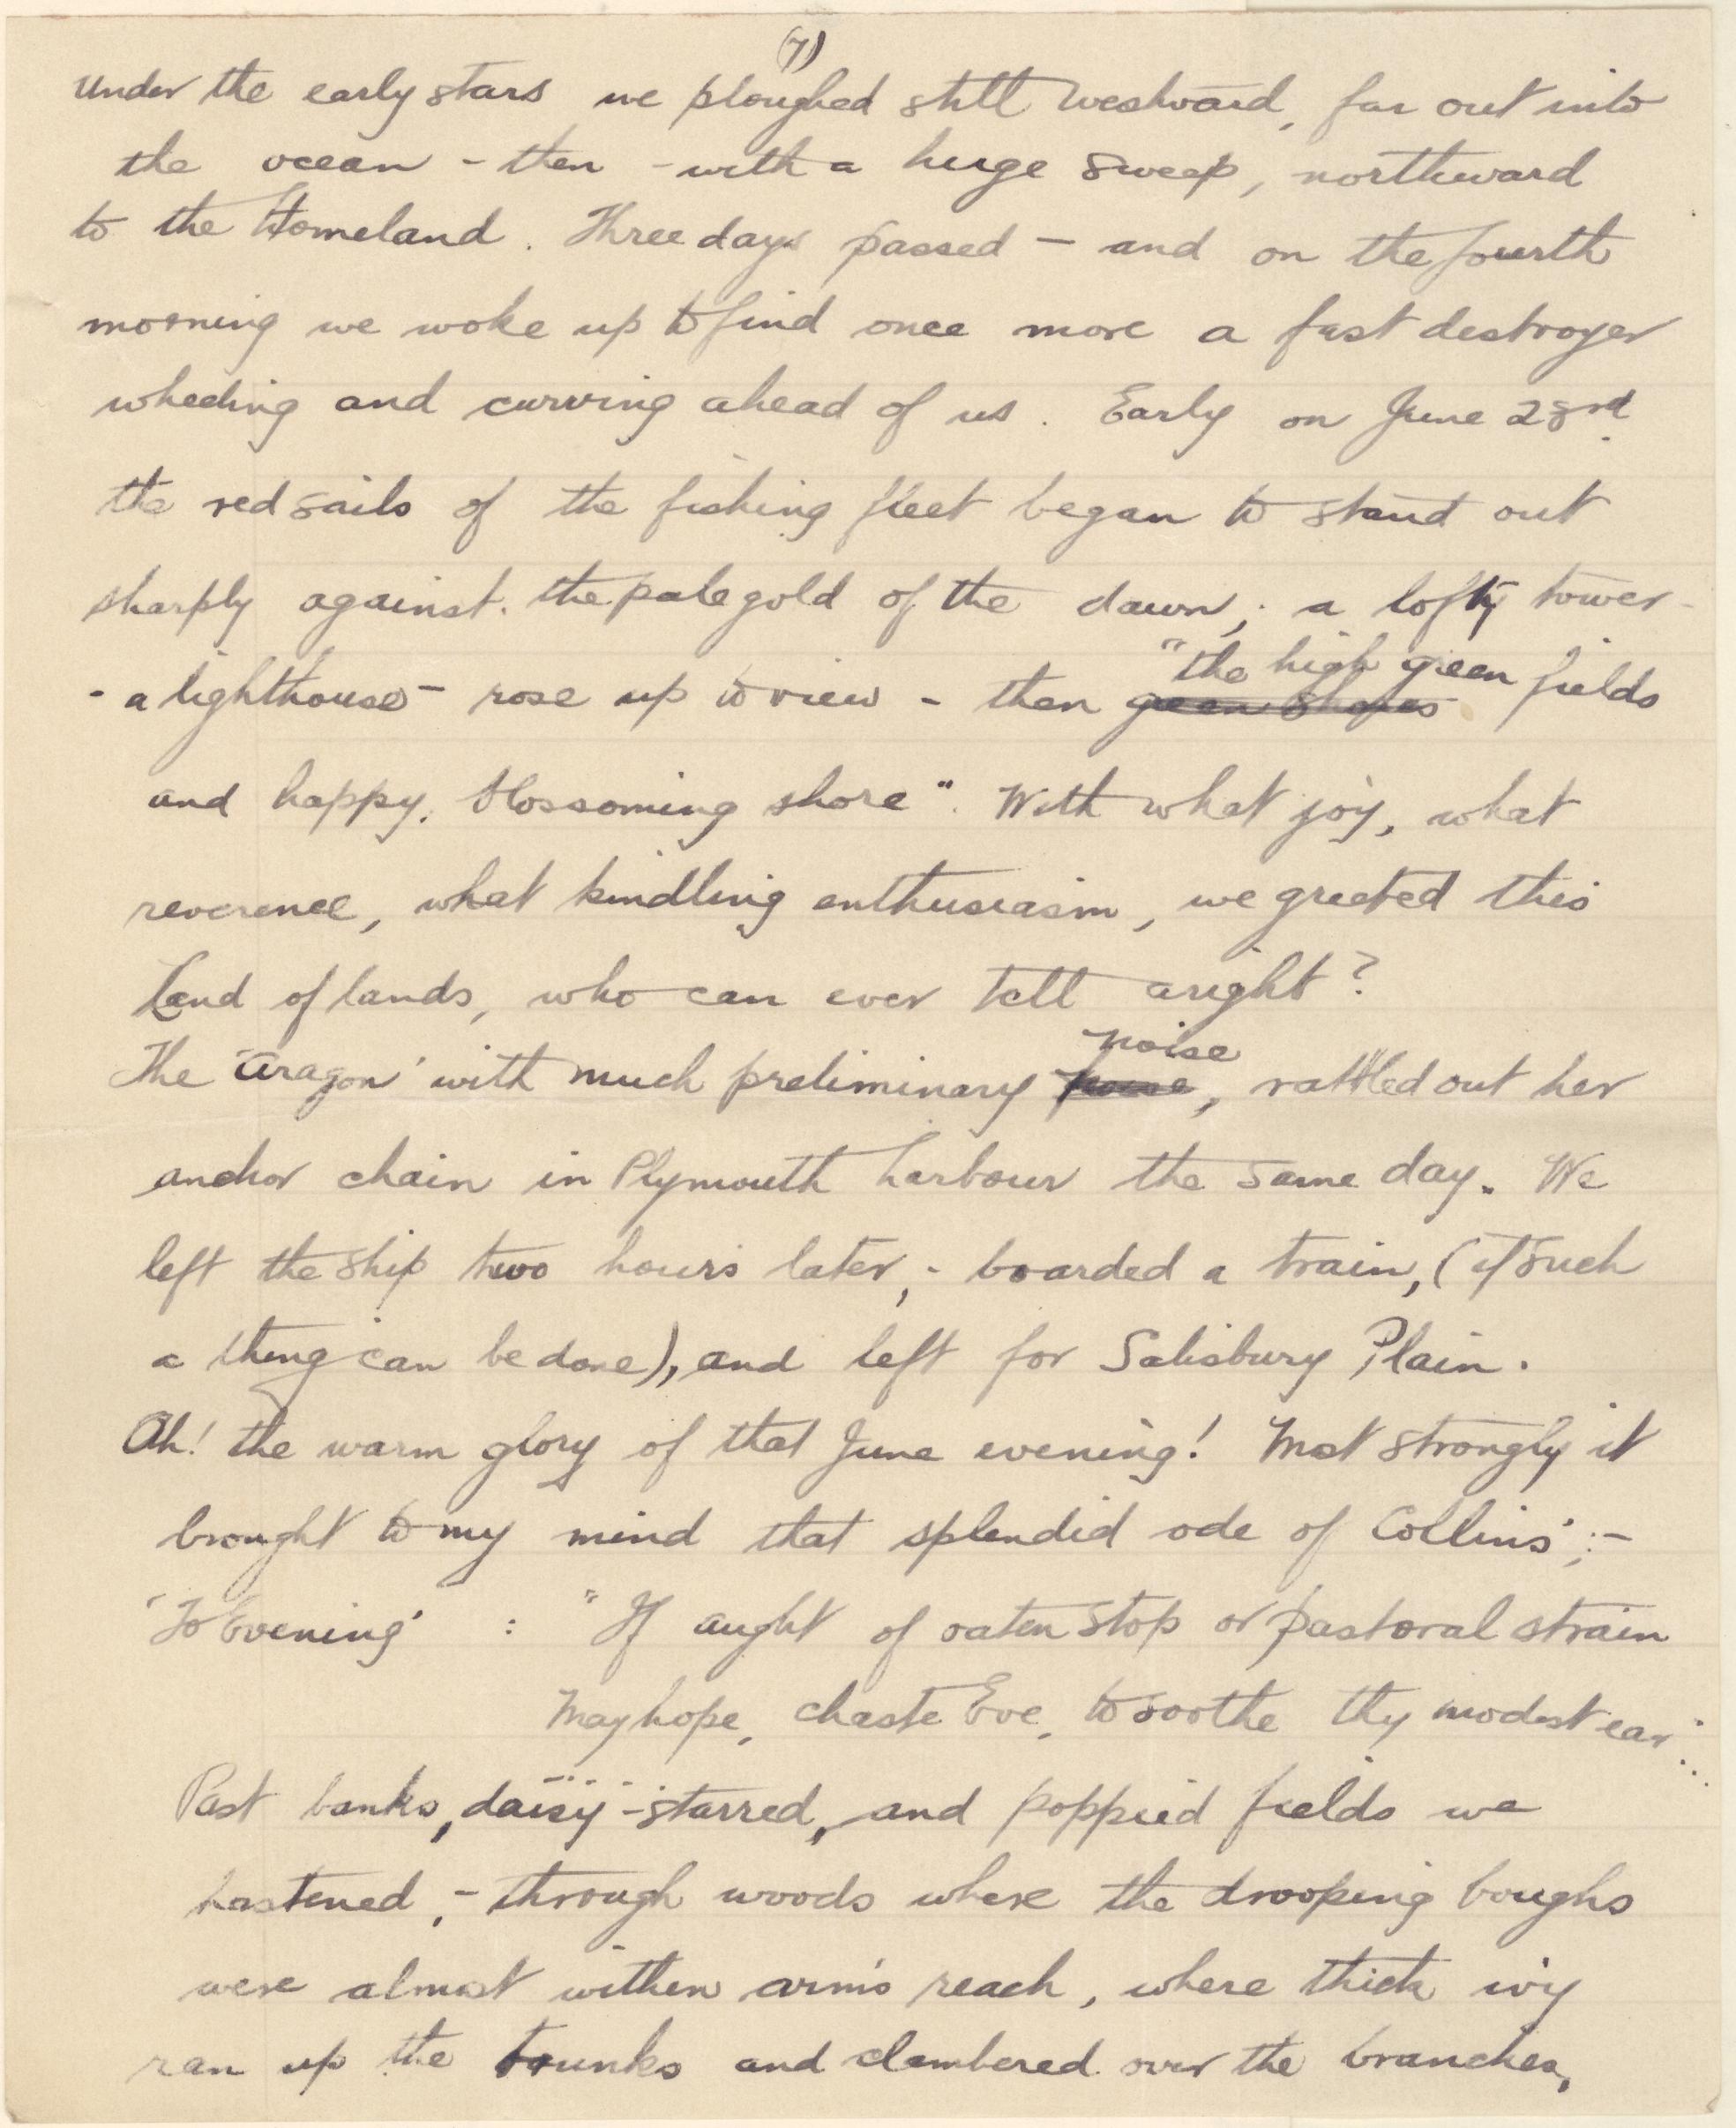 (7)
under the early stars we ploughed still westward, far out into
the ocean - then - with a huge sweep, northward
to the Homeland. Three days passed - and on the fourth
morning we woke up to find once more a fast destroyer
wheeling and curving ahead of us. Early on June 23rd
the red sails of the fishing fleet began to stand out
sharply against the pale gold of the dawn; a lofty tower -
"the high green fields
- a lighthouse - rose up to view - then green shores
and happy, blossoming shore". With what joy, what
reverence, what kindling enthusiasm, we greeted this
Land of lands, who can ever tell aright?
noise
The 'Aragon' with much preliminary , rattled out her
anchor chain in Plymouth harbour the same day. We
left the ship two hours later, - boarded a train, (if such
a thing can be done), and left for Salisbury Plain.
Ah! the warm glory of that June evening! Most strongly it
brought to my mind that splendid ode of Collins'; -
'To Evening' : "If aught of oaten stop or pastoral strain
May hope, chaste Eve, to soothe thy modest ear"...
Past banks, daisy-starred, and poppied fields we
hastened, - through woods where the drooping boughs
were almost within arm's reach, where thick ivy
ran up the trunks and clambered over the branches,